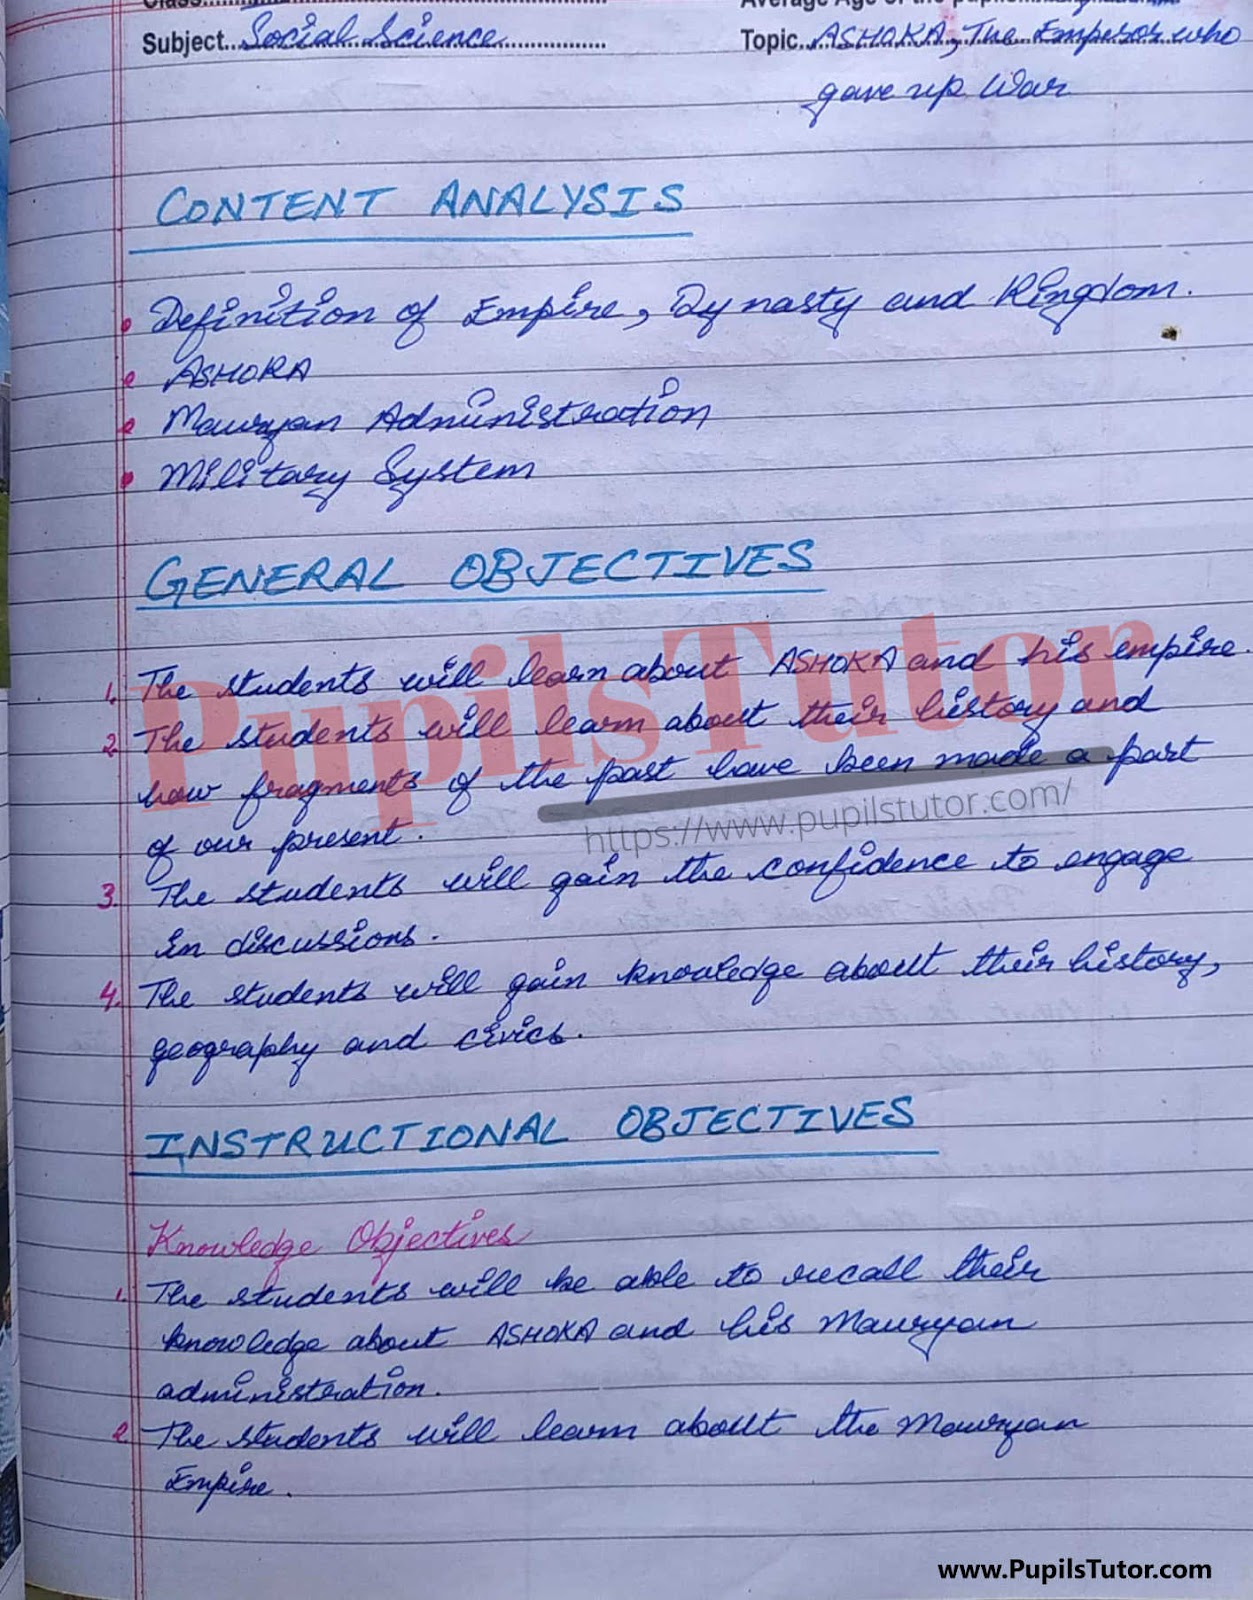 Class
Average Age of the pupils
Subject Social Science
Topic ASHOKA, The Emperor who
gave up War
CONTENT ANALYSIS
• Definition of Empire, Dynasty and Kingdom.
• ASHOKA
• Mauryan Administration
• Military System
GENERAL OBJECTIVES
1. The students will learn about ASHOKA and his empire.
2. The students will learn about their history and
how fragments of the past have been made a part
of our present.
3. The students will gain the confidence to engage
in discussions.
4. The students will gain knowledge about their history,
geography and civics.
INSTRUCTIONAL OBJECTIVES
Knowledge Objectives
1. The students will be able to recall their
knowledge about ASHOKA and his Mauryan
administration.
2. The students will learn about the Mauryan
Empire.
PupilsTutor
https://www.pupilstutor.com/
www.PupilsTutor.com